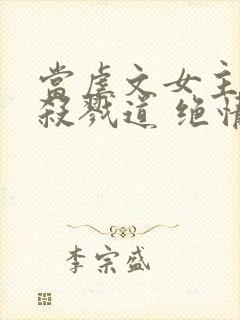 當虐文女主
殺戮道 绝情
李宗盛